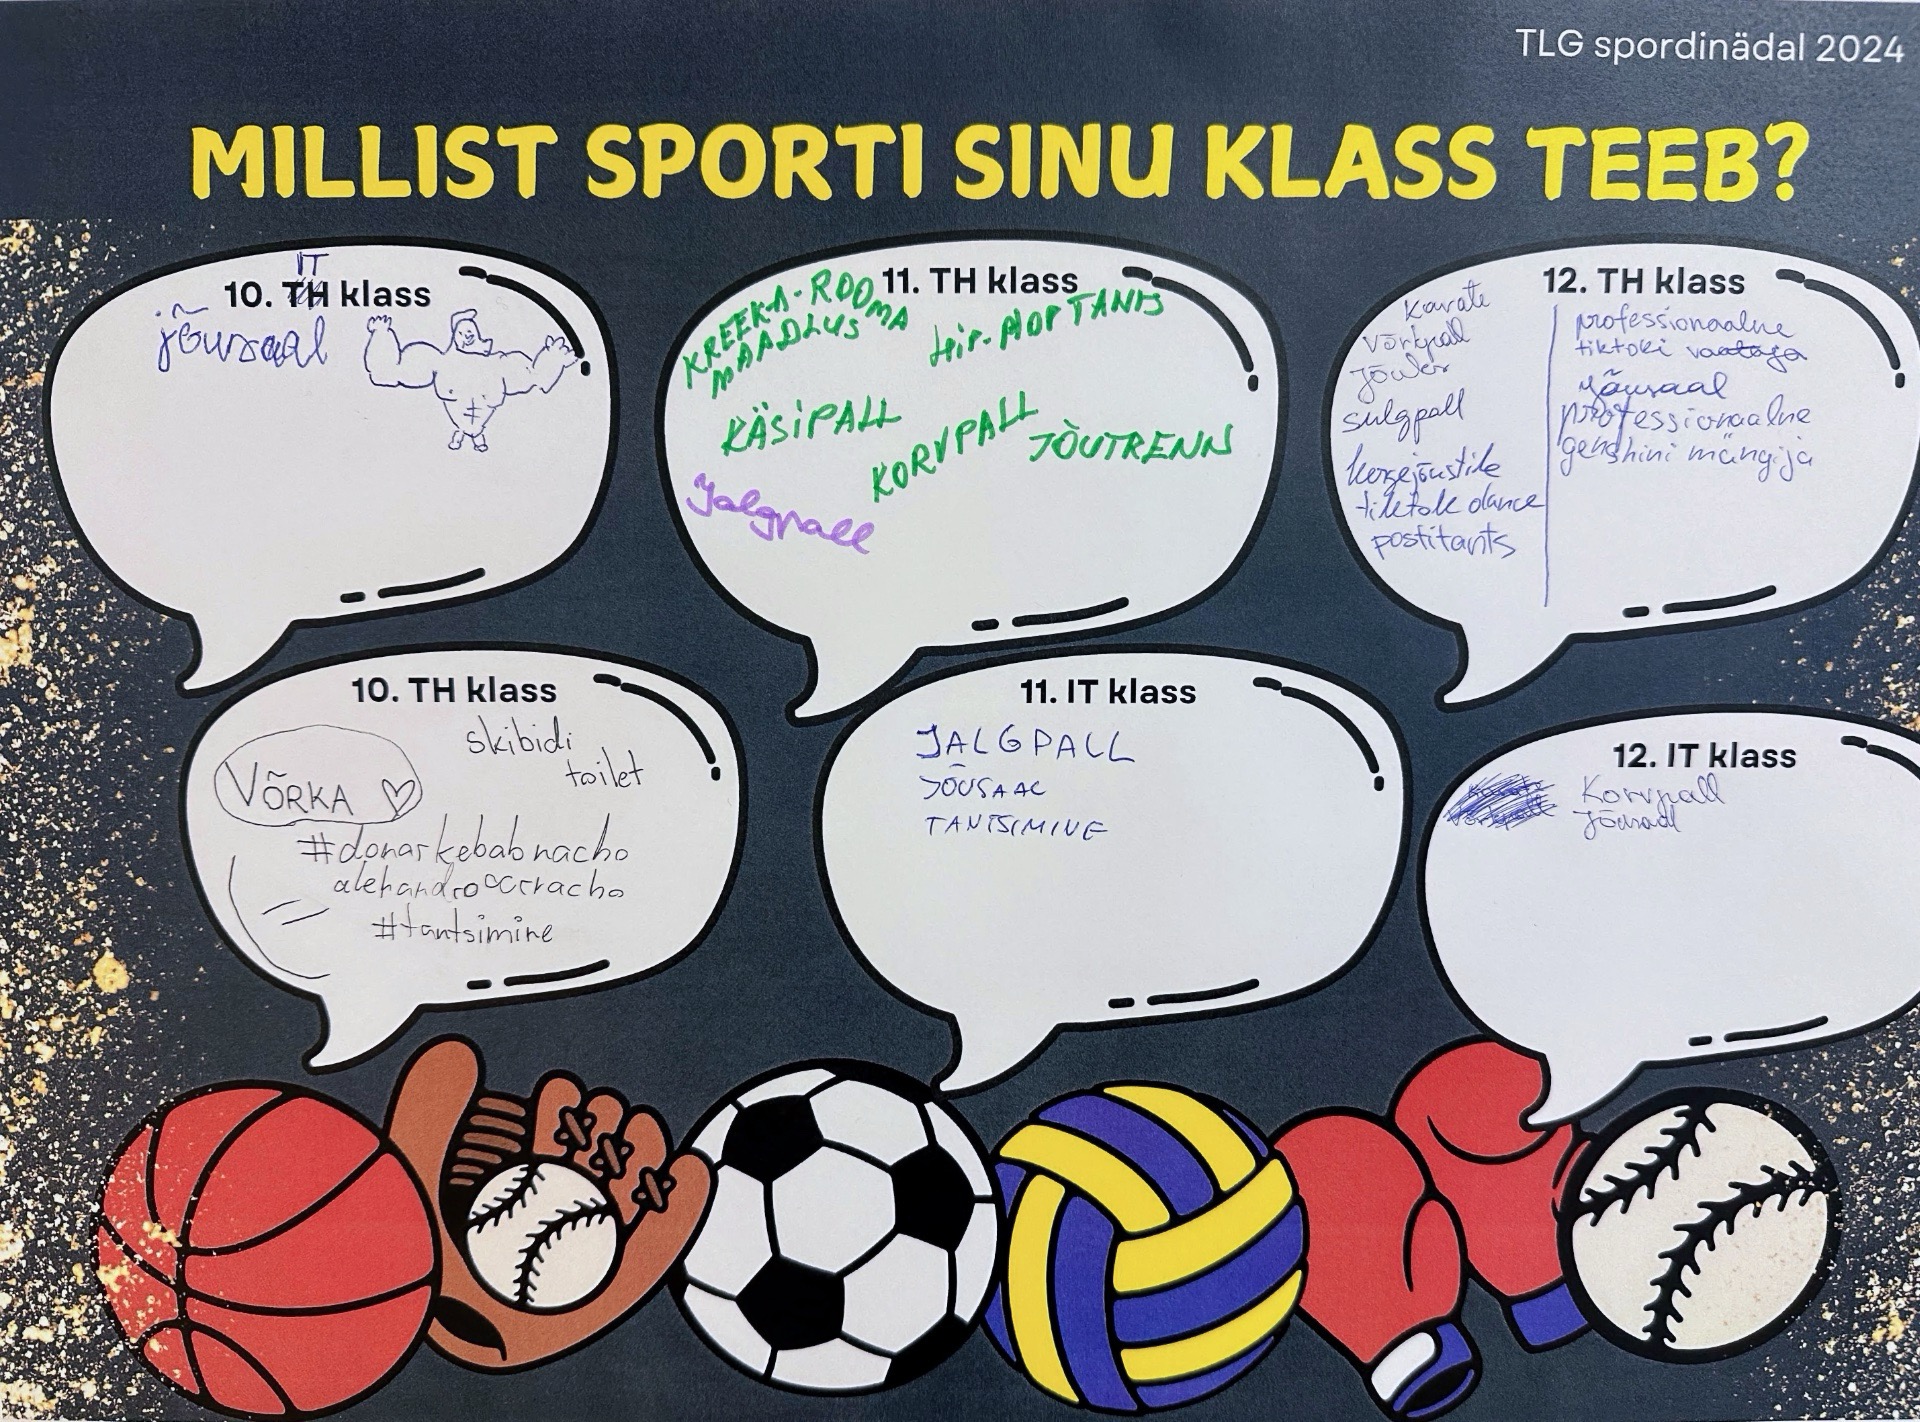 TLG spordinädal 2024
MILLIST SPORTI SINU KLASS TEEB?
IT
10. TH klass
jõusaal
11. TH klass
KREEKA-ROOMA
MAADLUS
HIP-HOP TANTS
KÄSIPALL
KORVPALL
JÕUTRENN
Jalgpall
12. TH klass
karate
võrkpall
sulgpall
kergejõustik
tiktok dance
postitants
professionaalne
tiktoki vaataja
jõusaal
professionaalne
genshini mängija
10. TH klass
skibidi
toilet
VÕRKA
#donarkebabnacho
#tantsimine
11. IT klass
JALGPALL
JÕUSAAL
TANTSIMINE
12. IT klass
Korvpall
Jõusaal